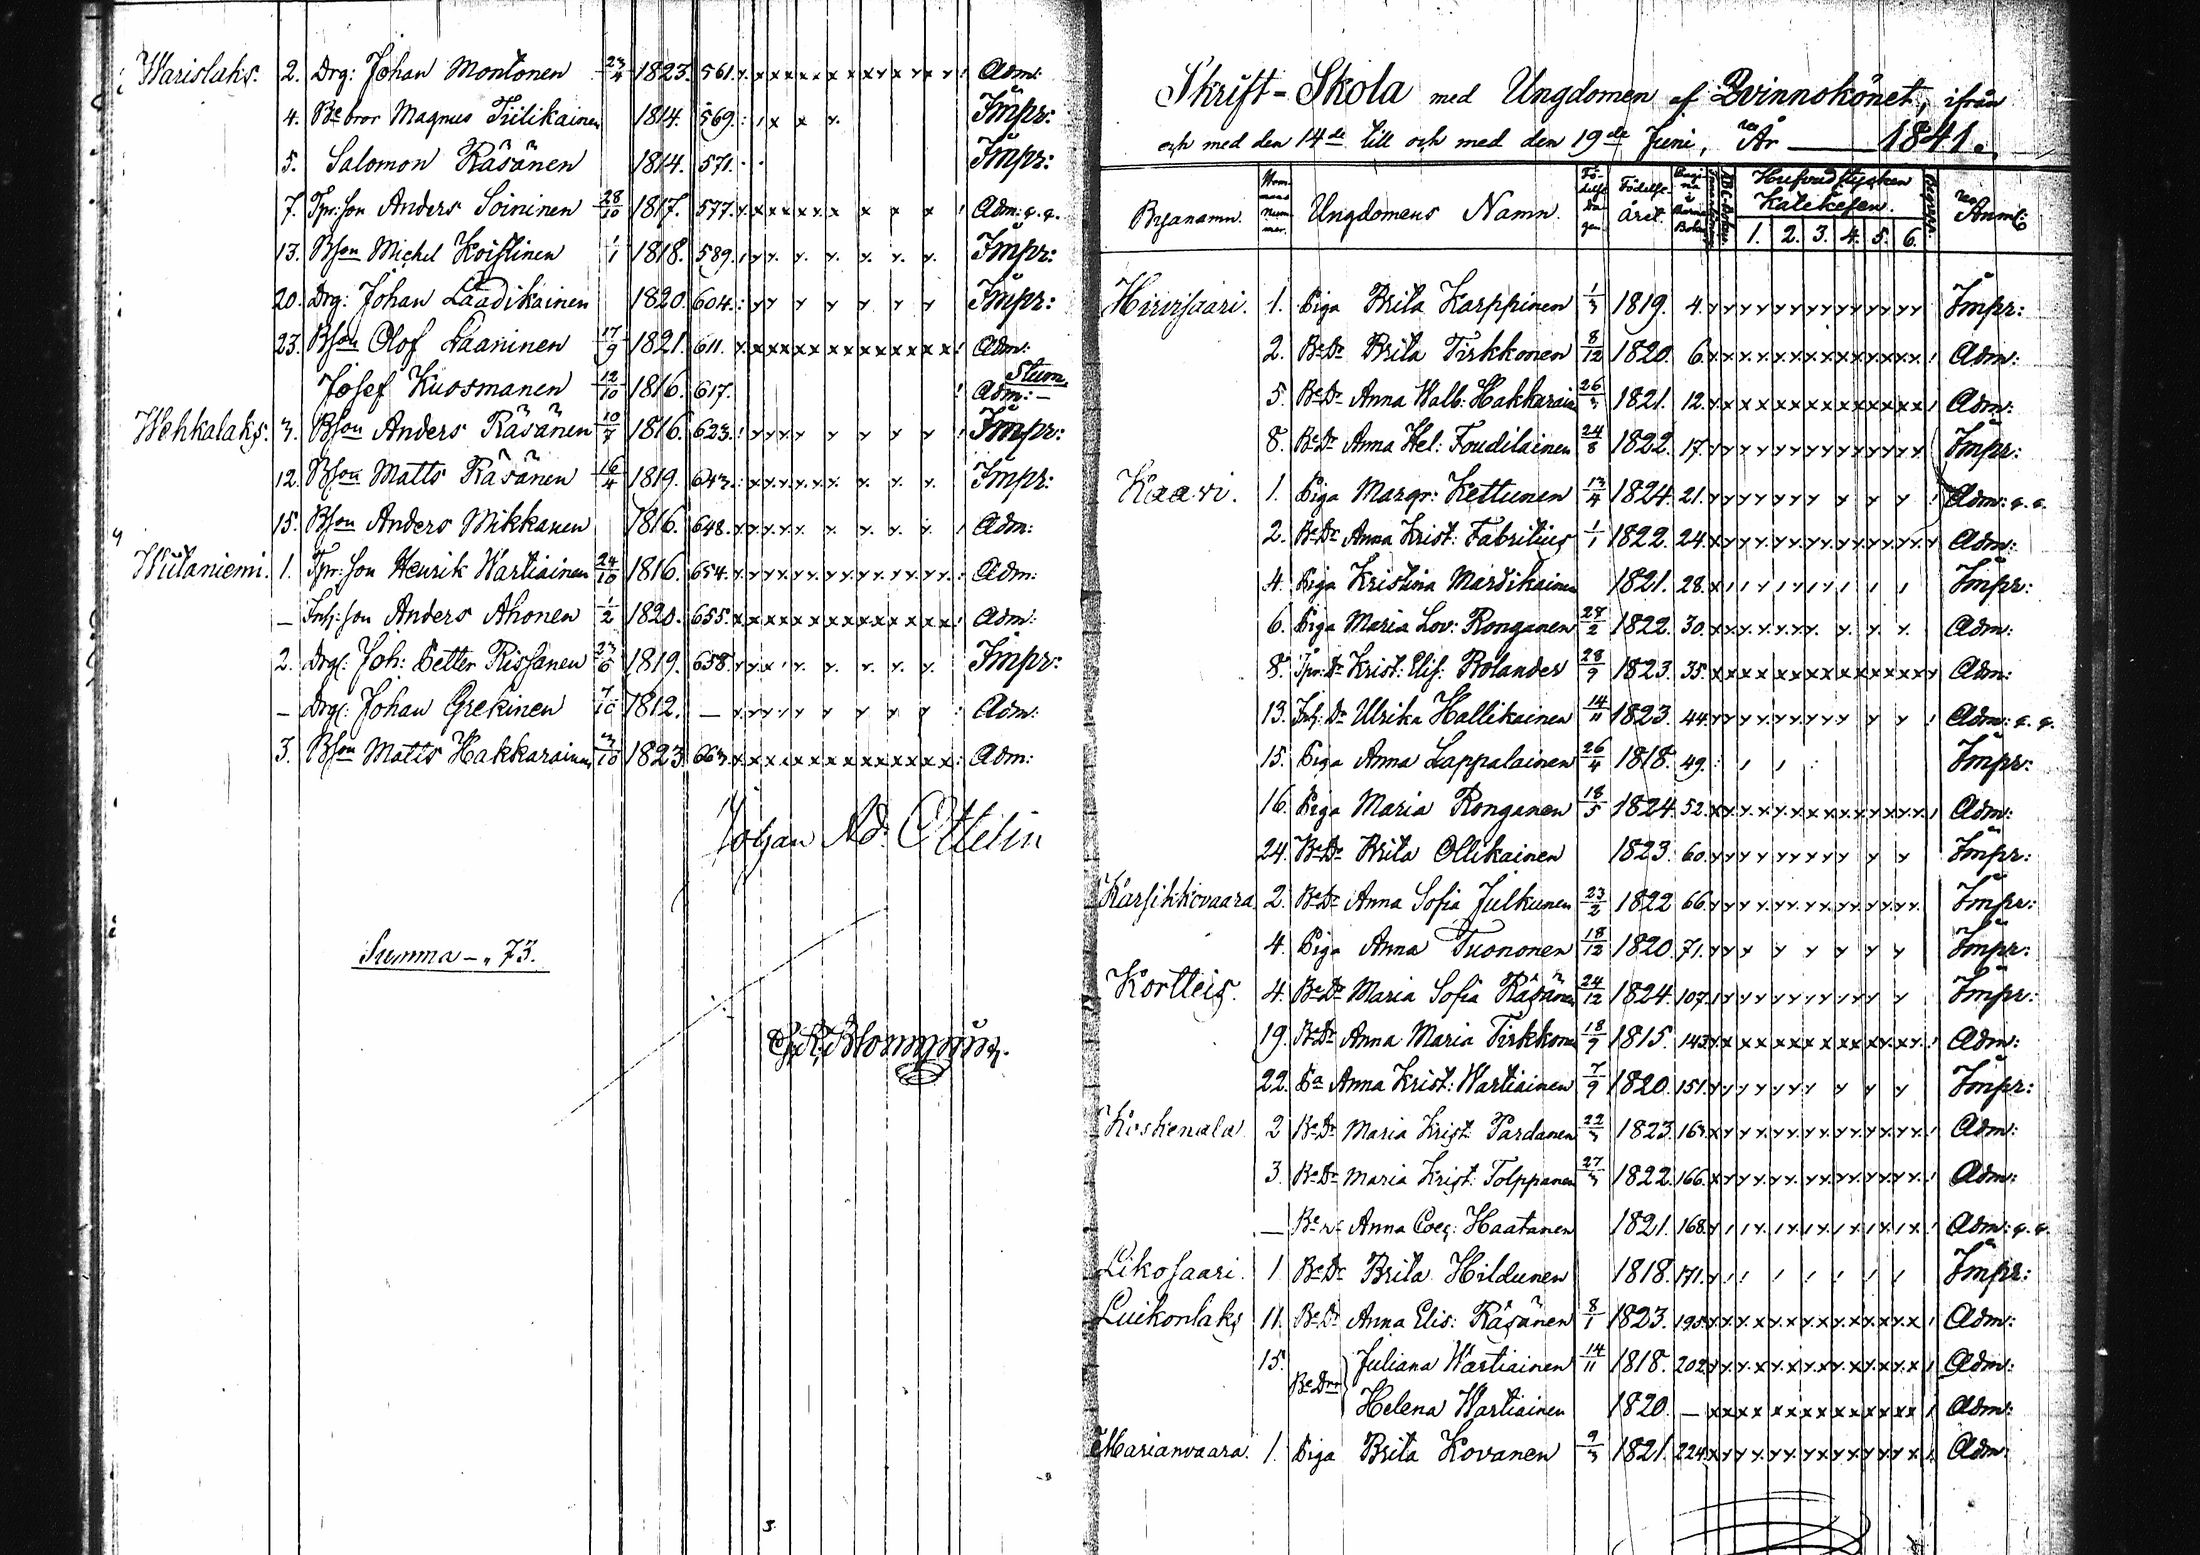 Warislaks. 2. Drg: Johan Montonen 23/4 1823. 561. Adm:
4. Be bror Magnus Tiilikainen 1814. 569. Impr:
5. Salomon Räsänen 1814. 571. Impr:
7. Tpr: son Anders Soininen 28/10 1817. 577. Adm: q. q.
13. Bson Michel Koistinen 1/1 1818. 589. Impr:
20. Drg: Johan Laadikainen 1820. 604. Impr:
23. Bson Olof Laaninen 17/9 1821. 611. Adm:
Josef Kuosmanen 12/10 1816. 617. Stum. Adm:
Wehkalaks. 3. Bson Anders Räsänen 1816. 623. Impr:
12. Bson Matts Räsänen 16/4 1819. 643. Impr:
15. Bson Anders Mikkanen 1816. 648. Adm:
Wutaniemi. 1. Tpr: son Henrik Wartiainen 24/10 1816. 654. Adm:
— Inh: son Anders Ahonen 1/2 1820. 655. Adm:
2. Drg: Joh: Petter Rissanen 23/6 1819. 658. Impr:
— Drg: Johan Grekinen 7/10 1812. — Adm:
3. Bson Matts Hakkarainen 3/10 1823. 663. Adm:
Johan Ad: Ottelin
Summa — 73.
Skrift-Skola med Ungdomen af Qvinnokönet, ifrån
och med den 14de till och med den 19de Juni, År — 1841.
Byanamn. Hemmans nummer. Ungdomens Namn. Födelse dagen. Födelse året. Pagina i Barna Boken Hufvudstycken Katekesen. 1. 2. 3. 4. 5. 6. Anml:
Hirvisaari. 1. Piga Brita Karppinen 1/3 1819. 4. Impr:
2. Be Dr Brita Tirkkonen 8/12 1820. 6. Adm:
5. Be Dr Anna Walb: Hakkarain 26/3 1821. 12. Adm:
8. Be Dr Anna Hel: Foudilainen 24/8 1822. 17. Impr:
Kaavi. 1. Piga Margr: Kettunen 13/4 1824. 21. Adm: q. q.
2. Be Dr Anna Krist: Fabritius 1/1 1822. 24. Adm:
4. Piga Kristina Mardikainen 1821. 28. Impr:
6. Piga Maria Lov: Ronganen 28/2 1822. 30. Adm:
8. Tpr: Dr Krist: Elis: Rolander 28/9 1823. 35. Adm:
13. Inh: Dr Ulrika Hallikainen 14/11 1823. 44. Adm: q. q.
15. Piga Anna Lappalainen 26/4 1818. 49. Impr:
16. Piga Maria Ronganen 18/5 1824. 52. Adm:
24. Be Dr Brita Ollikainen 1823. 60. Impr:
Karsikkovaara 2. Be Dr Anna Sofia Julkunen 23/2 1822 66. Impr:
4. Piga Anna Tuononen 18/12 1820. 71. Impr:
Kortteis. 4. Be Dr Maria Sofia Räsänen 24/12 1824. 107. Impr:
19. Be Dr Anna Maria Tirkkonen 18/9 1815. 143. Adm:
22. Pa Anna Krist: Wartiainen 7/9 1820. 151. Impr:
Koskenala 2 Be Dr Maria Krist: Pardanen 22/3 1823. 163. Adm:
3. Be Dr Maria Krist: Tolppanen 27/3 1822. 166. Adm:
— Anna Coec: Haatanen 1821. 168. Adm: q. q.
Likosaari. 1 Be Dr Brita Hildunen 1818. 171. Impr:
Luikonlaks 11. Be Dr Anna Elis: Räsänen 8/1 1823. 195. Adm:
15. Be Drr Juliana Wartiainen 14/11 1818. 202. Adm:
Helena Wartiainen 1820. — Adm:
Marianvaara. 1. Piga Brita Kovanen 9/3 1821. 224. Adm: